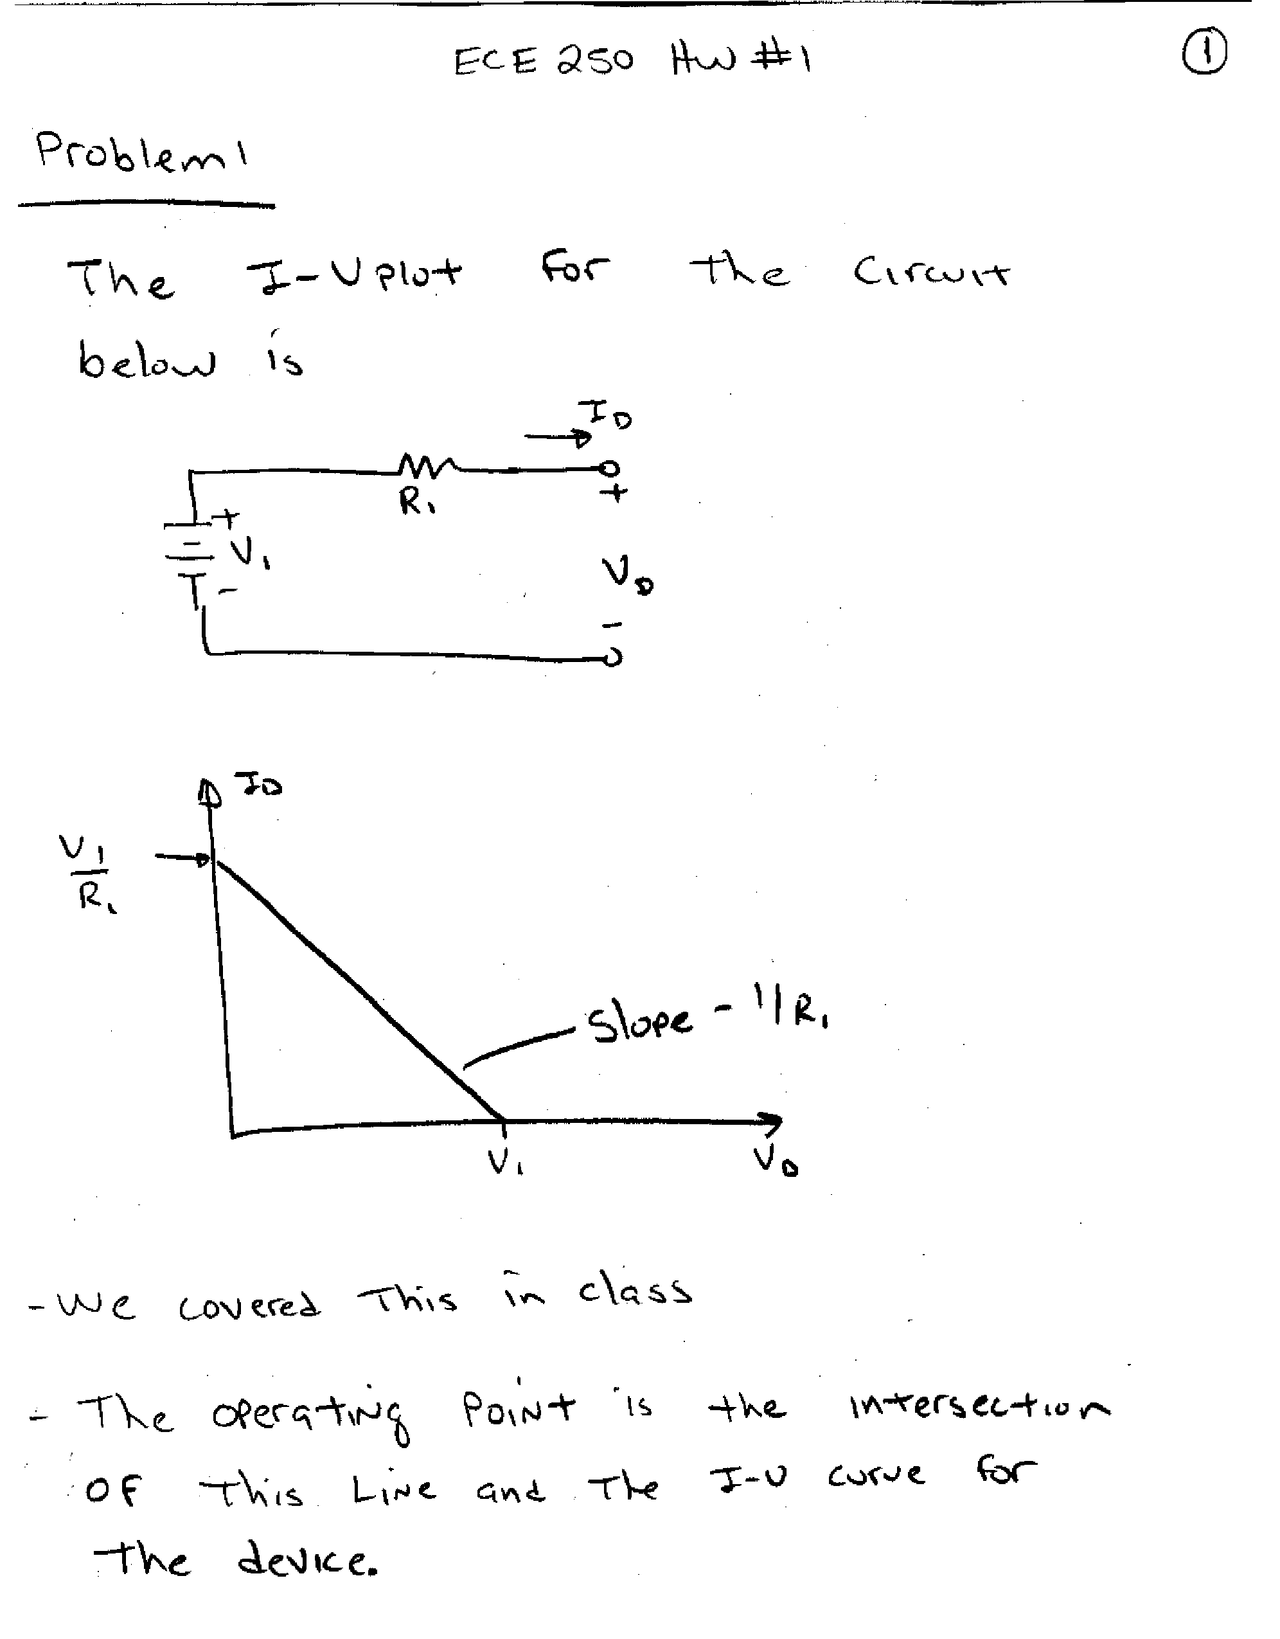 ECE 250 HW #1
1
Problem 1
The I-V plot for the circuit
below is
I_D
R_1
+
+
V_1
V_D
-
-
I_D
V_1
R_1
Slope - 1/R_1
V_1
V_D
- We covered This in class
- The operating Point is the intersection
OF This Line and The I-V curve for
The device.